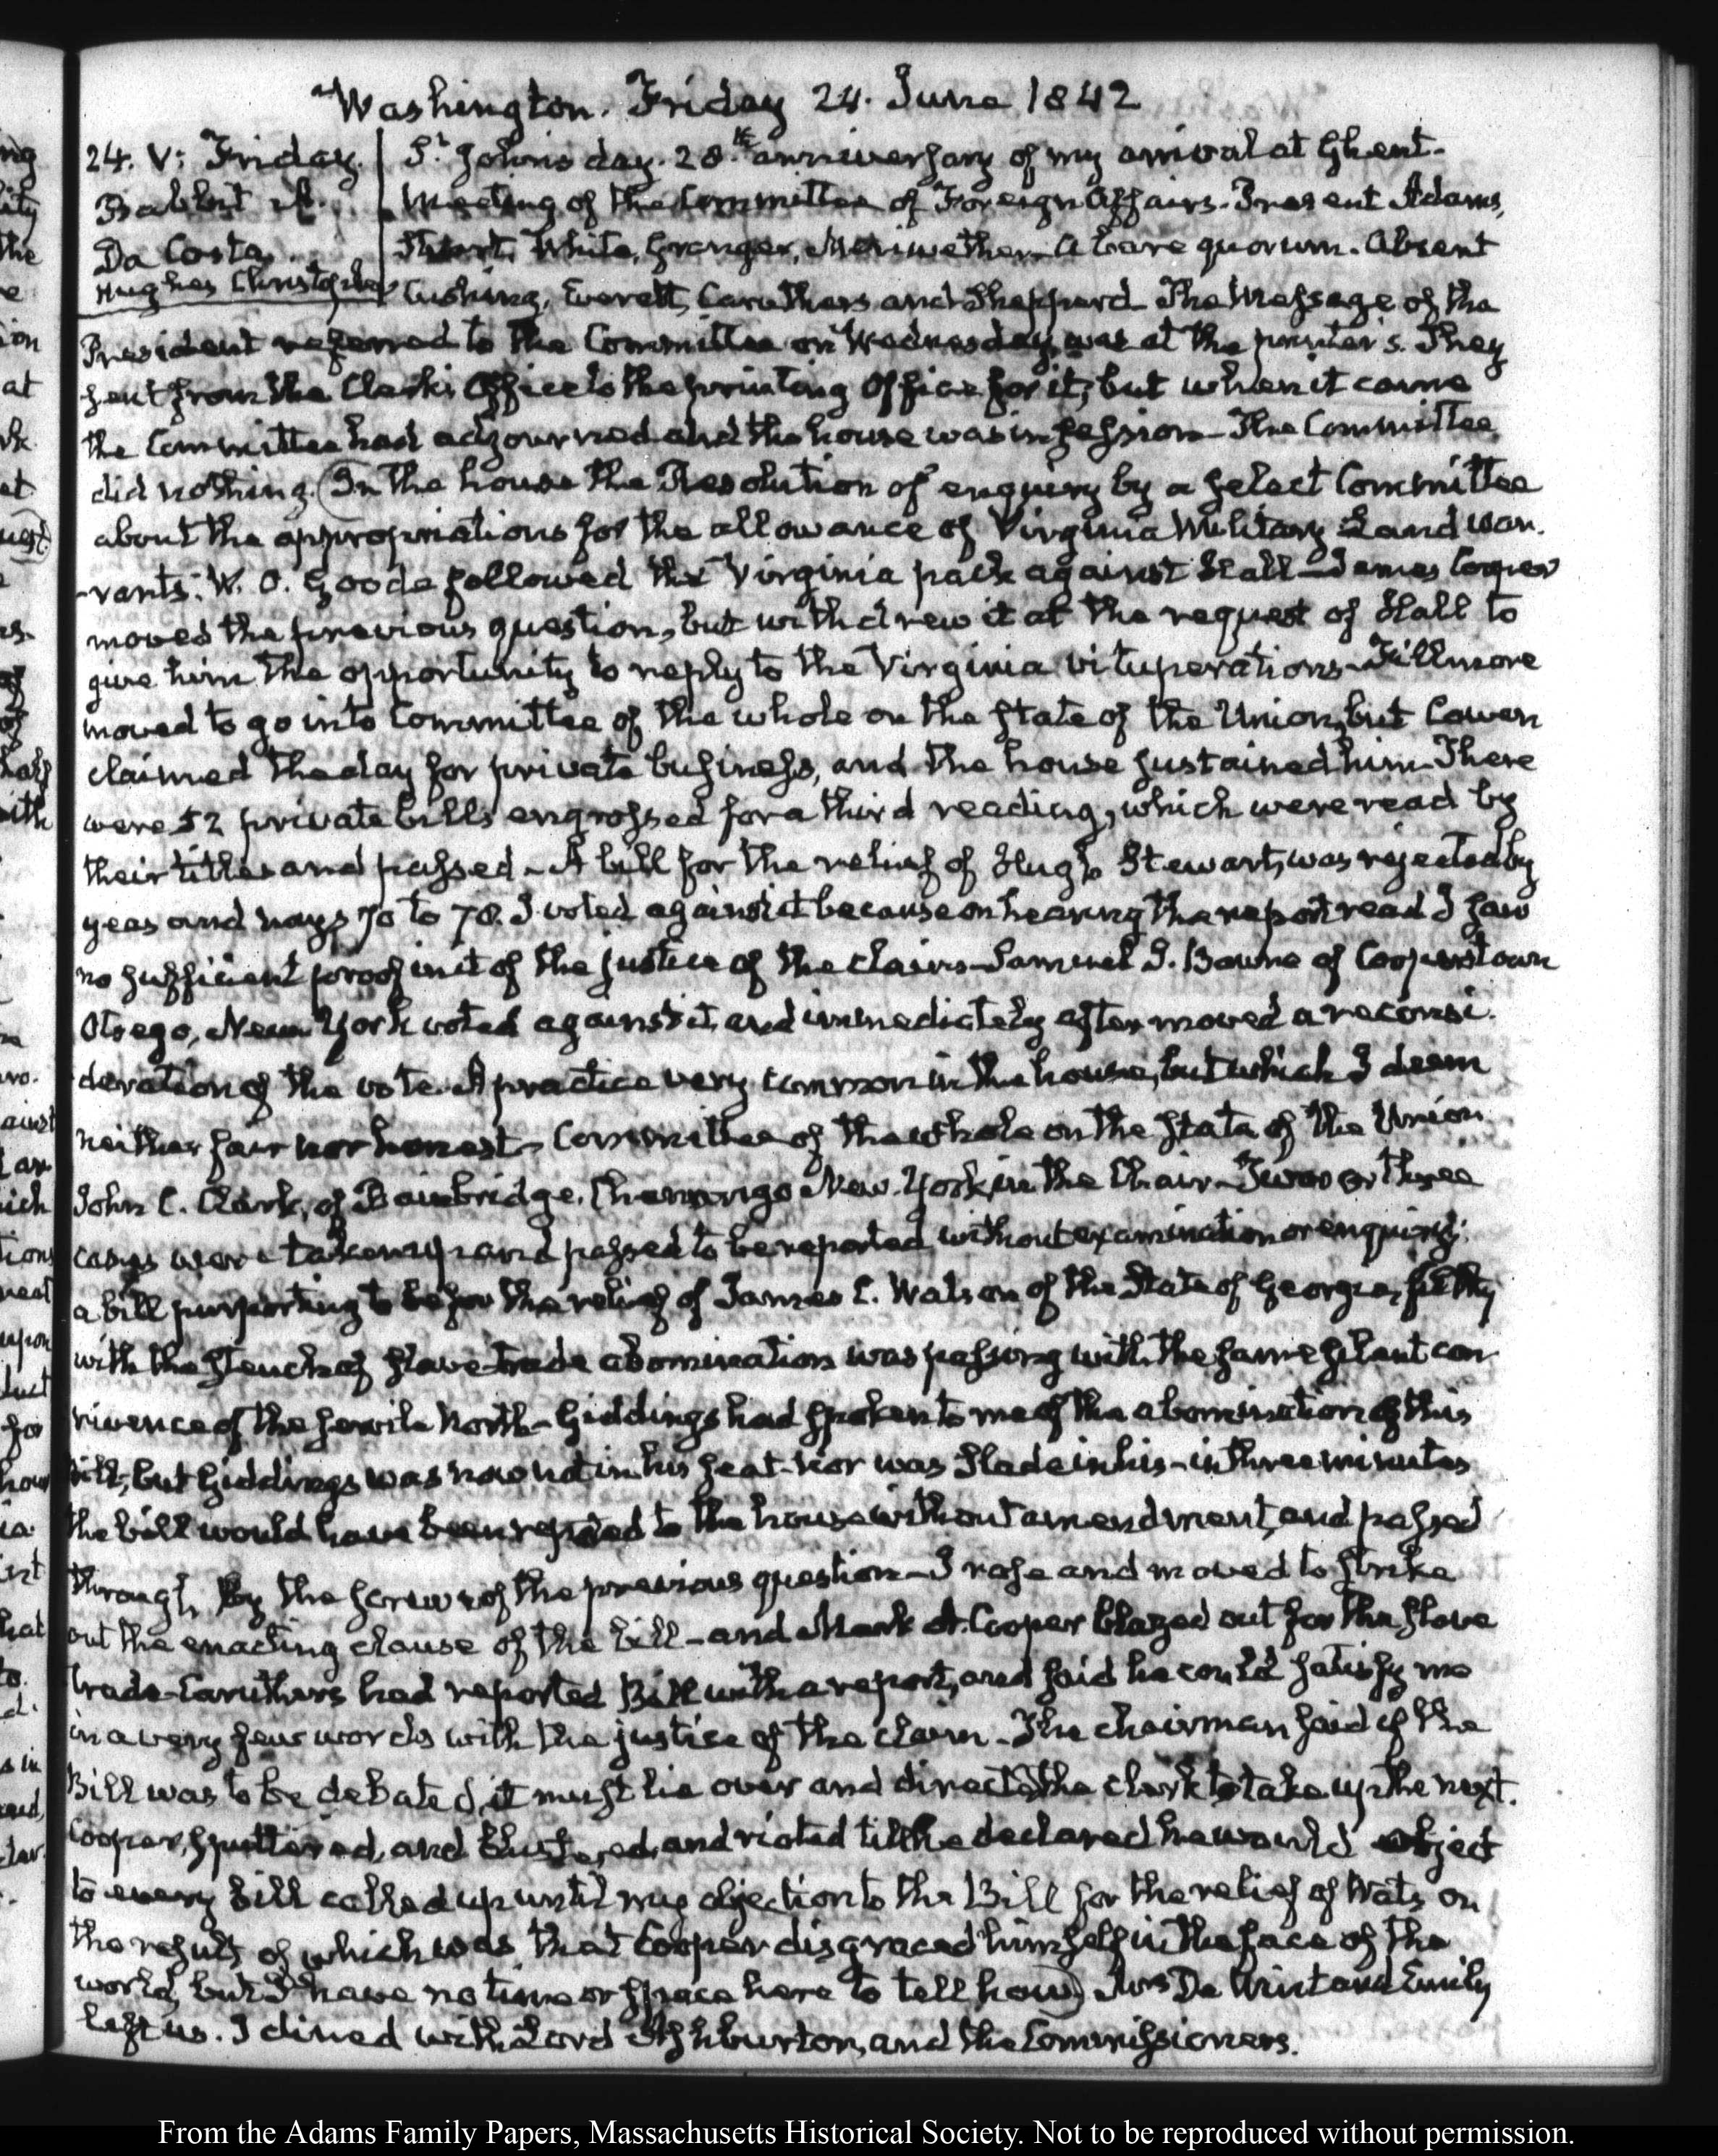 Washington. Friday 24. June 1842
24. V: Friday.
Babbit
Da Costa.
Hughes Christopher
St. John's day. 28.th anniversary of my arrival at Ghent.
Meeting of the Committee of Foreign Affairs. Present Adams,
Stuart, White, Granger, Meriwether. A bare quorum. Absent
Cushing, Everett, Caruthers and Shepperd. The Message of the
President referred to the Committee on Wednesday, was at the printer's. They
sent from the Clerk's Office to the printing Office for it, but when it came
the Committee had adjourned and the house was in session. The Committee
did nothing. (In the house the Resolution of enquiry by a select Committee
about the appropriations for the allowance of Virginia Military Land war-
-rants: W. O. Goode followed the Virginia pack against Hall. James Cooper
moved the previous question, but withdrew it at the request of Hall to
give him the opportunity to reply to the Virginia vituperations. Fillmore
moved to go into Committee of the whole on the state of the Union, but Cowen
claimed the day for private business, and the house sustained him. There
were 52 private bills engrossed for a third reading, which were read by
their titles and passed. A bill for the relief of Hugh Stewart, was rejected by
yeas and nays 70 to 78. I voted against it because on hearing the report read I saw
no sufficient proof in it of the justice of the claim. Samuel S. Bowne of Cooperstown
Otsego, New York voted against it, and immediately after moved a reconsi-
deration of the vote. A practice very common in the house, but which I deem
neither fair nor honest. Committee of the whole on the state of the Union
John C. Clark, of Bainbridge, Chenango New-York, in the Chair. Two or three
cases were taken up and passed to be reported, without examination or enquiry.
a bill purporting to be for the relief of James C. Watson of the State of Georgia, filthy
with the stench of slave-trade abomination was passing with the same silent con-
nivence of the servile North. Giddings had spoken to me of the abomination of this
bill, but Giddings was now not in his seat. Nor was Slade in his. in three minutes
the bill would have been reported to the house without amendment, and passed
through by the screws of the previous question. I rose and moved to strike
out the enacting clause of the bill. and Mark A. Cooper blazed out for the slave
trade. Caruthers had reported Bill with a report, and said he could satisfy me
in a very few words with the justice of the claim. The chairman said if the
Bill was to be debated, it must lie over and directed the clerk to take up the next.
Cooper, sputtered, and blustered, and rioted till he declared he would object
to every bill called up until my objection to the Bill for the relief of Watson
the result of which was that Cooper disgraced himself in the face of the
world, but I have no time or space here to tell how) Mrs De Wint and Emily
left us. I dined with Lord Ashburton, and the Commissioners.
From the Adams Family Papers, Massachusetts Historical Society. Not to be reproduced without permission.